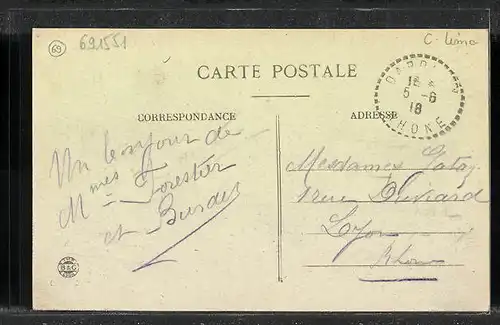 69
691551
C-Limo
CARTE POSTALE
CORRESPONDANCE
ADRESSE
16
5 -6
18
RHONE
Un bonjour de
Mmes Forestier
et
Mesdames
rue
Lyon
Rhône
B&G